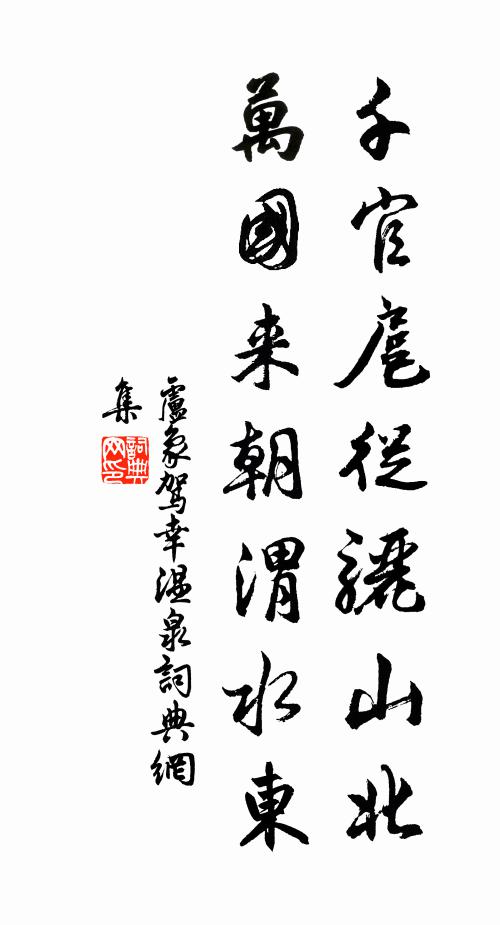 千官扈從驪山北
萬國来朝渭水東
盧象駕幸温泉詞典網
集
詞典
网印